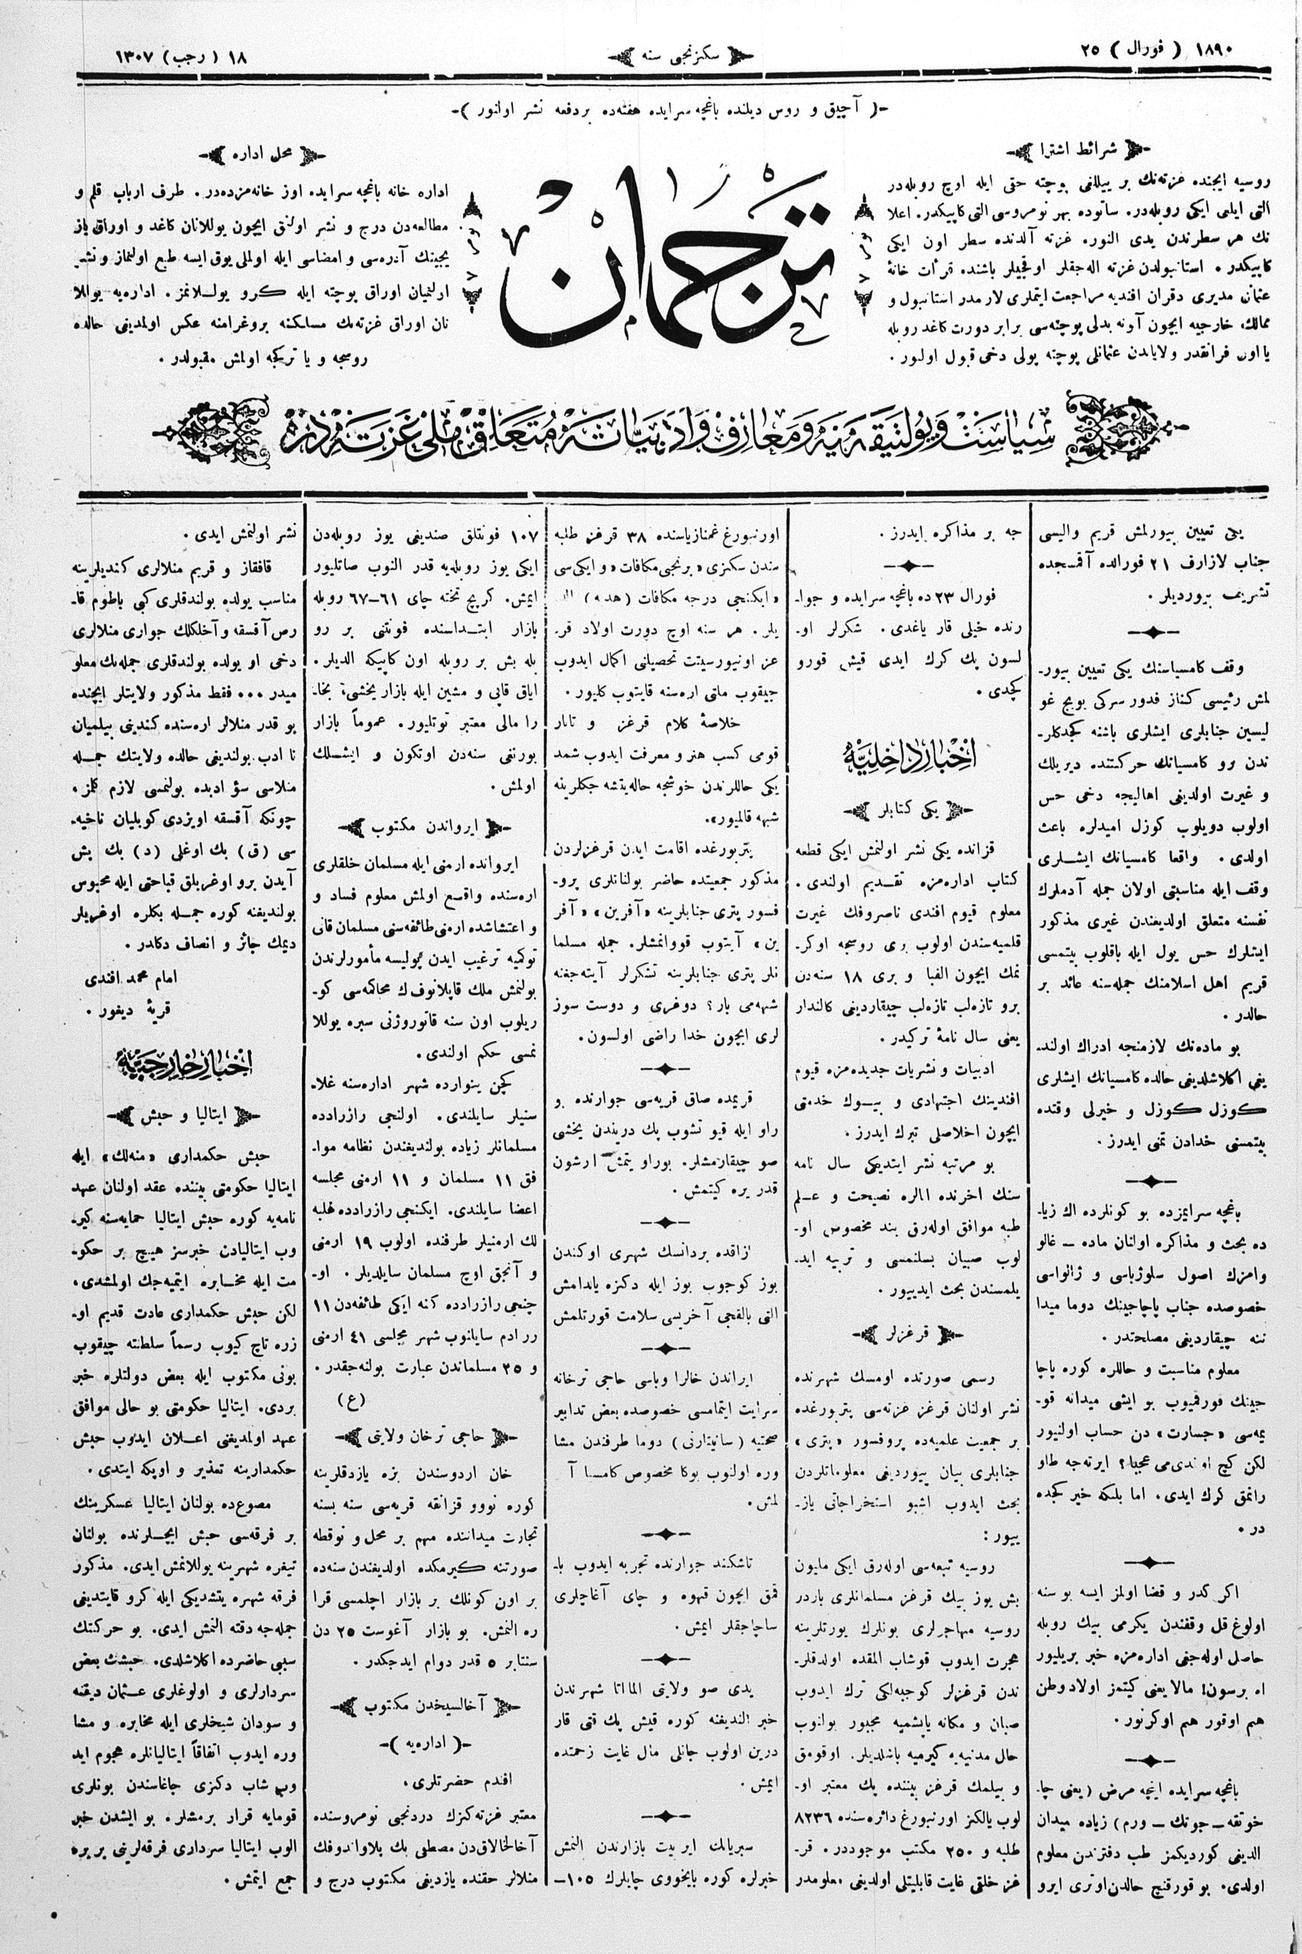 ١٨٩٠ ( فورال ) ٢٥
سكزنجی سنه
١٨ ( رجب ) ١٣٠٧
-( آچیق و روس دیلنده باغچه سرایده هفته‌ده بردفعه نشر اولنور )-
شرائط اشترا
روسیه ایچنده غزته‌نك بر ییللغی پوچته حقی ایله اوچ روبله‌در
التی ایلغی ایكی روبله‌در. ساتوده بهر نومروسی التی كاپیكدر. اعلا
نك هر سطرندن یدی النور. غزته آلدنده سطر اون ایكی
كاپیكدر. استانبولدن غزته اله‌جقلر اوقجیلر باشنده قرأت خانۀ
عثمانی مدیری دقران افندیه مراجعت ایتملری لازمدر استانبول و
ممالك خارجیه ایچون آدنه بدلی پوچته‌سی برابر دورت كاغد روبله
یا اون فرانقدر ولایاتدن عثمانلی پوچته پولی دخی قبول اولنور.
ترجمان
محل اداره
اداره خانه باغچه سرایده اوز خانه‌مزده‌در. طرف ارباب قلم و
مطالعه‌دن درج و نشر اولنق ایچون یوللانان كاغد و اوراق یاز
یجینك آدره‌سی و امضاسی ایله اولملی یوق ایسه طبع اولنماز و نشر
اولنمیان اوراق پوچته ایله كرو یوللانمز. اداره‌یه یوللا
نان اوراق غزته‌نك مسلكنه پروغرامنه عكس اولمدیغی حالده
روسجه و یا تركجه اولمش مقبولدر.
سیاست و پولتیقه‌یه و معارف و ادبیاته متعلق ملی غزته‌در
یكی تعیین بیورلمش قریم والیسی
جناب لازارف ٢١ فورالده آقمسجده
تشریف بیوردیلر.
وقف كامسیاسنك یكی تعیین بیور-
لمش رئیسی كناز فدور سركی یویج غو
لیسین جنابلری ایشلری باشنه كچدكلر-
ندن برو كامسیانك حركتنده دیریلك
و غیرت اولدیغی اهالیجه دخی حس
اولوب دویلوب كوزل امیدلره باعث
اولدی. واقعا كامسیانك ایشلری
وقف ایله مناسبتی اولان جمله آدملرك
نفسنه متعلق اولدیغندن غیری مذكور
ایشلرك حس یول ایله باقلوب بیتمسی
قریم اهل اسلامنك جمله‌سنه عائد بر
حالدر.
بو ماده‌نك لازمنجه ادراك اولند-
یغی اكلاشلدیغی حالده كامسیانك ایشلری
كوزل كوزل و خیرلی وقتده
بیتمسنی خدادن تمنی ایدرز.
باغچه سرایمزده بو كونلرده اك زیا-
ده بحث و مذاكره اولنان ماده — غالو
وامزك اصول سلوژباسی و ژالواسی
خصوصده جناب پاچاجینك دوما میدا
ننه چیقاردیغی مصلحتدر.
معلوم مناسبت و حاللره كوره پاچا
جینك قورقمیوب بو ایشی میدانه قو-
یمه‌سی «جسارت» دن حساب اولنیور
لكن كچ اولندیمی عجبا؟ ایرته‌جه طاو
رانمق كرك ایدی. اما بلكه خیر كجده
در.
اكر كدر و قضا اولمز ایسه بو سنه
اولوغ قل وقفندن یكرمی بیك روبله
حاصل اوله‌جغی اداره‌مزه خبر بریلیور
اه برسون! مالا یعنی كیتمز اولاد وطن
هم اوقور هم اوكرنور.
باغچه سرایده اینچه مرض (یعنی چا-
خوتقه — جونك — ورم) زیاده میدان
الدیغی كوردیكمز طب دفترندن معلوم
اولدی. بو قورقنچ حالدن اوتری ایرو
جه بر مذاكره ایدرز.
فورال ٢٣ ده باغچه سرایده و جوا-
رنده خیلی قار یاغدی. شكرلر او-
لسون پك كرك ایدی قیش قورو
كچدی.
اخبار داخلیه
یكی كتابلر
قزانده یكی نشر اولنمش ایكی قطعه
كتاب اداره‌مزه تقدیم اولندی.
معلوم قیوم افندی ناصروفك غیرت
قلمیه‌سندن اولوب بری روسجه اوكر-
نمك ایچون الفبا و بری ١٨ سنه‌دن
برو تازه‌لب تازه‌لب چیقاردیغی كالندار
یعنی سال نامۀ تركیدر.
ادبیات و نشریات جدیده‌مزه قیوم
افندینك اجتهادی و بیوك خدمتی
ایچون اخلاصلی تبرك ایدرز.
بو مرتبه نشر ایتدیكی سال نامه
سنك اخرنده انالره نصیحت و علم
طبه موافق اوله‌رق بند مخصوص او-
لوب صبیان بسلنمسی و تربیه اید-
یلمسندن بحث ایدییور.
قرغزلر
رسمی صورتده اومسك شهرنده
نشر اولنان قرغز غزته‌سی پتربورغده
بر جمعیت علمیه‌ده پروفسور «پتری»
جنابلری بیان بیوردیغی معلوماتلردن
بحث ایدوب اشبو استخراجاتی یاز-
ییور:
روسیه تبعه‌سی اوله‌رق ایكی ملیون
بش یوز بیك قرغز مسلمانلری باردر
روسیه مهاجرلری بونلرك یورتلرینه
هجرت ایدوب قوشاب المقده اولدقلر-
ندن قرغزلر كوچبه‌لكی ترك ایدوب
صبان و مكانه یاپشمیه مجبور بولنوب
حال مدنیه‌یه كیرمیه باشلدیلر. اوقومق
و بیلمك قرغز بیننده پك معتبر او-
لوب یالكز اورنبورغ دائره‌سنده ٨٢٣٦
طلبه و ٢٥٠ مكتب موجوددر. قر-
غز خلقی غایت قابلیتلی اولدیغی معلومدر
اورنبورغ غمنازیاسنده ٣٨ قرغز طلبه
سندن سكزی «برنجی مكافات» و ایكی سی
«ایكنجی درجه مكافات (هدیه) الد
یلر. هر سنه اوچ دورت اولاد قر-
غز اونیورسیتت تحصیلنی اكمال ایدوب
چیقوب ملتی اره‌سنه قایتوب كلیور.
خلاصۀ كلام قرغز و تاتار
قومی كسب هنر و معرفت ایدوب شمد
یكی حاللرندن خوشجه حاله یتشه جكلرینه
شبهه قالمیور».
پتربورغده اقامت ایدن قرغزلردن
مذكور جمعیتده حاضر بولنانلری پرو-
فسور پتری جنابلرینه «آفرین» «آفر
ین» آیتوب قووانمشلر. جمله مسلما
نلر پتری جنابلرینه تشكرلر آیته‌جغنه
شبهه‌می بار؟ دوغری و دوست سوز
لری ایچون خدا راضی اولسون.
قریمده صاق قریه‌سی جوارنده و
راو ایله قیو تشوب پك دریندن یخشی
صو چیقارمشلر. بوراو یتمش ارشون
قدر یره كیتمش.
ازاقده بردانسك شهری اوكندن
بوز كوچوب بوز ایله دكزه یاندامش
التی بالقجی آخریسی سلامت قورتلمش
ایراندن خالرا وباسی حاجی ترخانه
سرایت ایتمامسی خصوصده بعض تدابیر
صحتیه (سانیتارنی) دوما طرفندن مشا
وره اولنوب بوكا مخصوص كامسا آ
لمش.
تاشكند جوارنده تجربه ایدوب با-
قمق ایچون قهوه و چای آغاچلری
ساچاجقلر ایمش.
یدی صو ولایتی الما اتا شهرندن
خبر الندیغنه كوره قیش پك قتی قار
درین اولوب جانلی مال غایت زحمتده
ایمش.
سبریانك ایربیت بازارندن النمش
خبرلره كوره بایخووی چایلرك ١٠٥—
١٠٧ فونتلق صندیغی یوز روبله‌دن
ایكی یوز روبله‌یه قدر النوب صاتلیور
ایمش. كرپچ تخته چای ٦١—٦٧ روبله
بازار ابتداسنده فونتنی بر رو
بله بش بر روبله اون كاپیكه الدیلر.
ایاق قابی و مشین ایله بازار یخشی؛ بخا-
را مالی معتبر توتلیور. عموماً بازار
بورنقی سنه‌دن اوتكون و ایشلك
اولمش.
ایرواندن مكتوب
ایروانده ارمنی ایله مسلمان خلقلری
اره‌سنده واقع اولمش معلوم فساد و
و اغتشاشده ارمنی طائفه‌سنی مسلمان قانی
توكمیه ترغیب ایدن پولیسه مأمورلرندن
بولنمش ملك قاپلانوف ك محاكمه‌سی كو-
ریلوب اون سنه قاتورژنی سبره یوللا
نمسی حكم اولندی.
كچن ینوارده شهر اداره‌سنه غلا-
سنیلر سایلندی. اولنجی رازرادده
مسلمانلر زیاده بولندیغندن نظامه موا-
فق ١١ مسلمان و ١١ ارمنی مجلسه
اعضا سایلندی. ایكنجی رازرادده غلبه
لك ارمنیلر طرفنده اولوب ١٩ ارمنی
و آنجق اوچ مسلمان سایلدیلر. او-
چنجی رازرادده كنه ایكی طائفه‌دن ١١
رر ادم سایلنوب شهر مجلسی ٤١ ارمنی
و ٢٥ مسلماندن عبارت بولنه‌جقدر.
(ع)
حاجی ترخان ولایتی
خان اردوسندن بزه یازدقلرینه
كوره نووو قزانقه قریه‌سی سنه بسنه
تجارت میداننده مهم بر محل و نوقطه
صورتنه كیرمكده اولدیغندن سنه‌ده
بر اون كونلك بر بازار اچلمسی قرا
ره النمش. بو بازار آغوست ٢٥ دن
سنتابر ٥ قدر دوام ایدجكدر.
آخالسیخدن مكتوب
-( اداره‌یه )-
افندم حضرتلری.
معتبر غزته‌كزك دردنجی نومروسنده
آخالخالاق‌دن مصطفی بك پلاواندوفك
منلالر حقنده یازدیغی مكتوب درج و
نشر اولنمش ایدی.
قافقاز و قریم منلالری كندیلرینه
مناسب یولده بولندقلری كبی باطوم قا-
رص آقسقه و آخلكلك جواری منلالری
دخی او یولده بولندقلری جمله‌نك معلو
میدر... فقط مذكور ولایتلر ایچنده
بو قدر منلالر اره‌سنده كندینی بیلمیان
نا ادب بولندیغی حالده ولایتك جمله
منلاسی سؤ ادبده بولنمسی لازم كلمز.
چونكه آقسقه اویزدی كوبلیان ناخیه-
سی (ق) بك اوغلی (د) بك بش
آیدن برو اوغریلق قباحتی ایله محبوس
بولندیغنه كوره جمله بكلره اوغریلر
دیمك جائز و انصاف دكلدر.
امام محمد افندی
قریۀ دیغور.
اخبار خارجیه
ایتالیا و حبش
حبش حكمداری «منه‌لك» ایله
ایتالیا حكومتی بیننده عقد اولنان عهد
نامه‌یه كوره حبش ایتالیا حمایه‌سنه كیر-
وب ایتالیادن خبرسز هیچ بر حكو-
مت ایله مخابره ایتمیه‌جك اولمشدی،
لكن حبش حكمداری عادت قدیم او-
زره تاج كیوب رسماً سلطنته چیقوب
بونی مكتوب ایله بعض دولتلره خبر
بردی. ایتالیا حكومتی بو حالی موافق
عهد اولمدیغنی اعلان ایدوب حبش
حكمدارینه تعذیر و اوپكه ایتدی.
مصوعده بولنان ایتالیا عسكرینك
بر فرقه‌سی حبش ایچلرنده بولنان
تیغره شهرینه یوللانمش ایدی. مذكور
فرقه شهره یتشدیكی ایله كرو قایتدیغی
جمله‌جه دقته النمش ایدی. بو حركتك
سببی حاضرده اكلاشلدی. حبشك بعض
سردارلری و اولوغلری عثمان دیقنه
و سودان شیخلری ایله مخابره و مشا
وره ایدوب اتفاقاً ایتالیانلره هجوم اید
وب شاب دكزی جاغاسندن بونلری
قومایه قرار برمشلر. بو ایشدن خبر
الوب ایتالیا سرداری فرقه‌لرینی بر یره
جمع ایتمش.